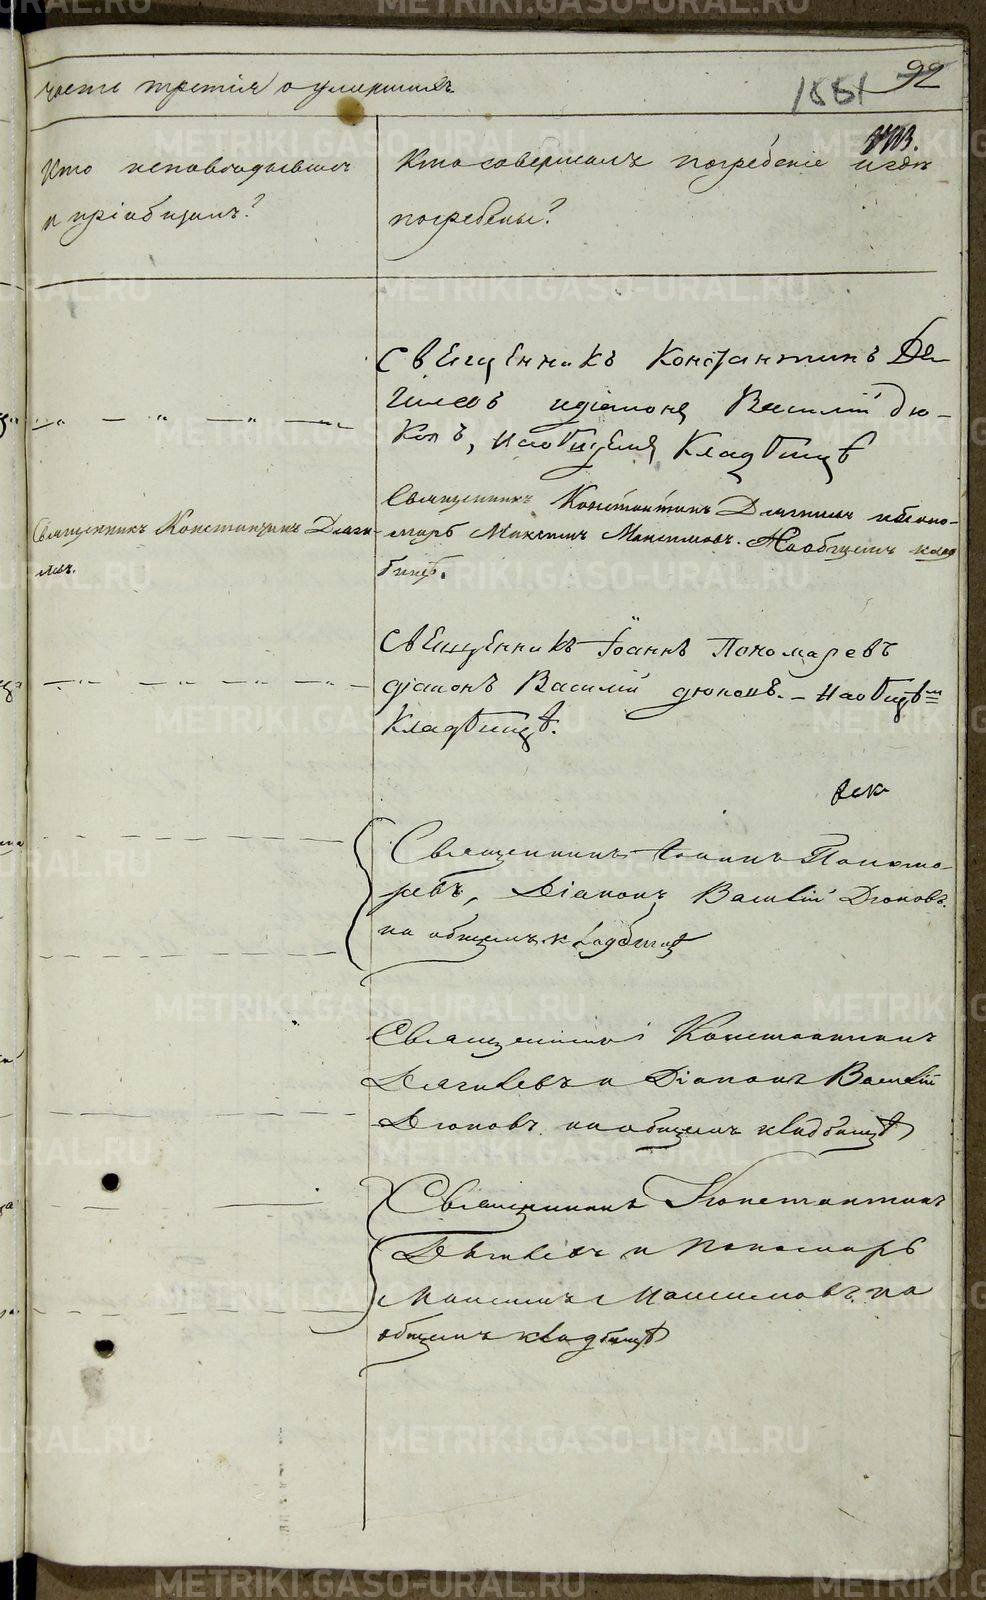 часть третія о умершихъ
1881 92
Кто исповѣдывалъ
и пріобщалъ?
Кто совершалъ погребеніе и гдѣ
погребены?
Свещенникъ Константинъ Де
гилевъ и діаконъ Василій Дю-
ковъ, на общемъ кладбищѣ
Священникъ Константинъ Дяги-
левъ.
Священникъ Константинъ Дягилевъ и поно-
марь Максимъ Максимовъ. На общемъ клад
бищѣ.
Свещенникъ Іоаннъ Пономаревъ
діаконъ Василій Дюковъ. – на общѣмъ
кладбищѣ.
Священникъ Іоаннъ Понома-
ревъ, Діаконъ Василій Дюковъ.
на общемъ кладбищѣ
Священникъ Константинъ
Дягилевъ и Діаконъ Василій
Дюковъ на общемъ кладбищѣ
Священникъ Константинъ
Дягилевъ и Пономарь
Максимъ Максимовъ. на
общемъ кладбищѣ
METRIKI.GASO-URAL.RU